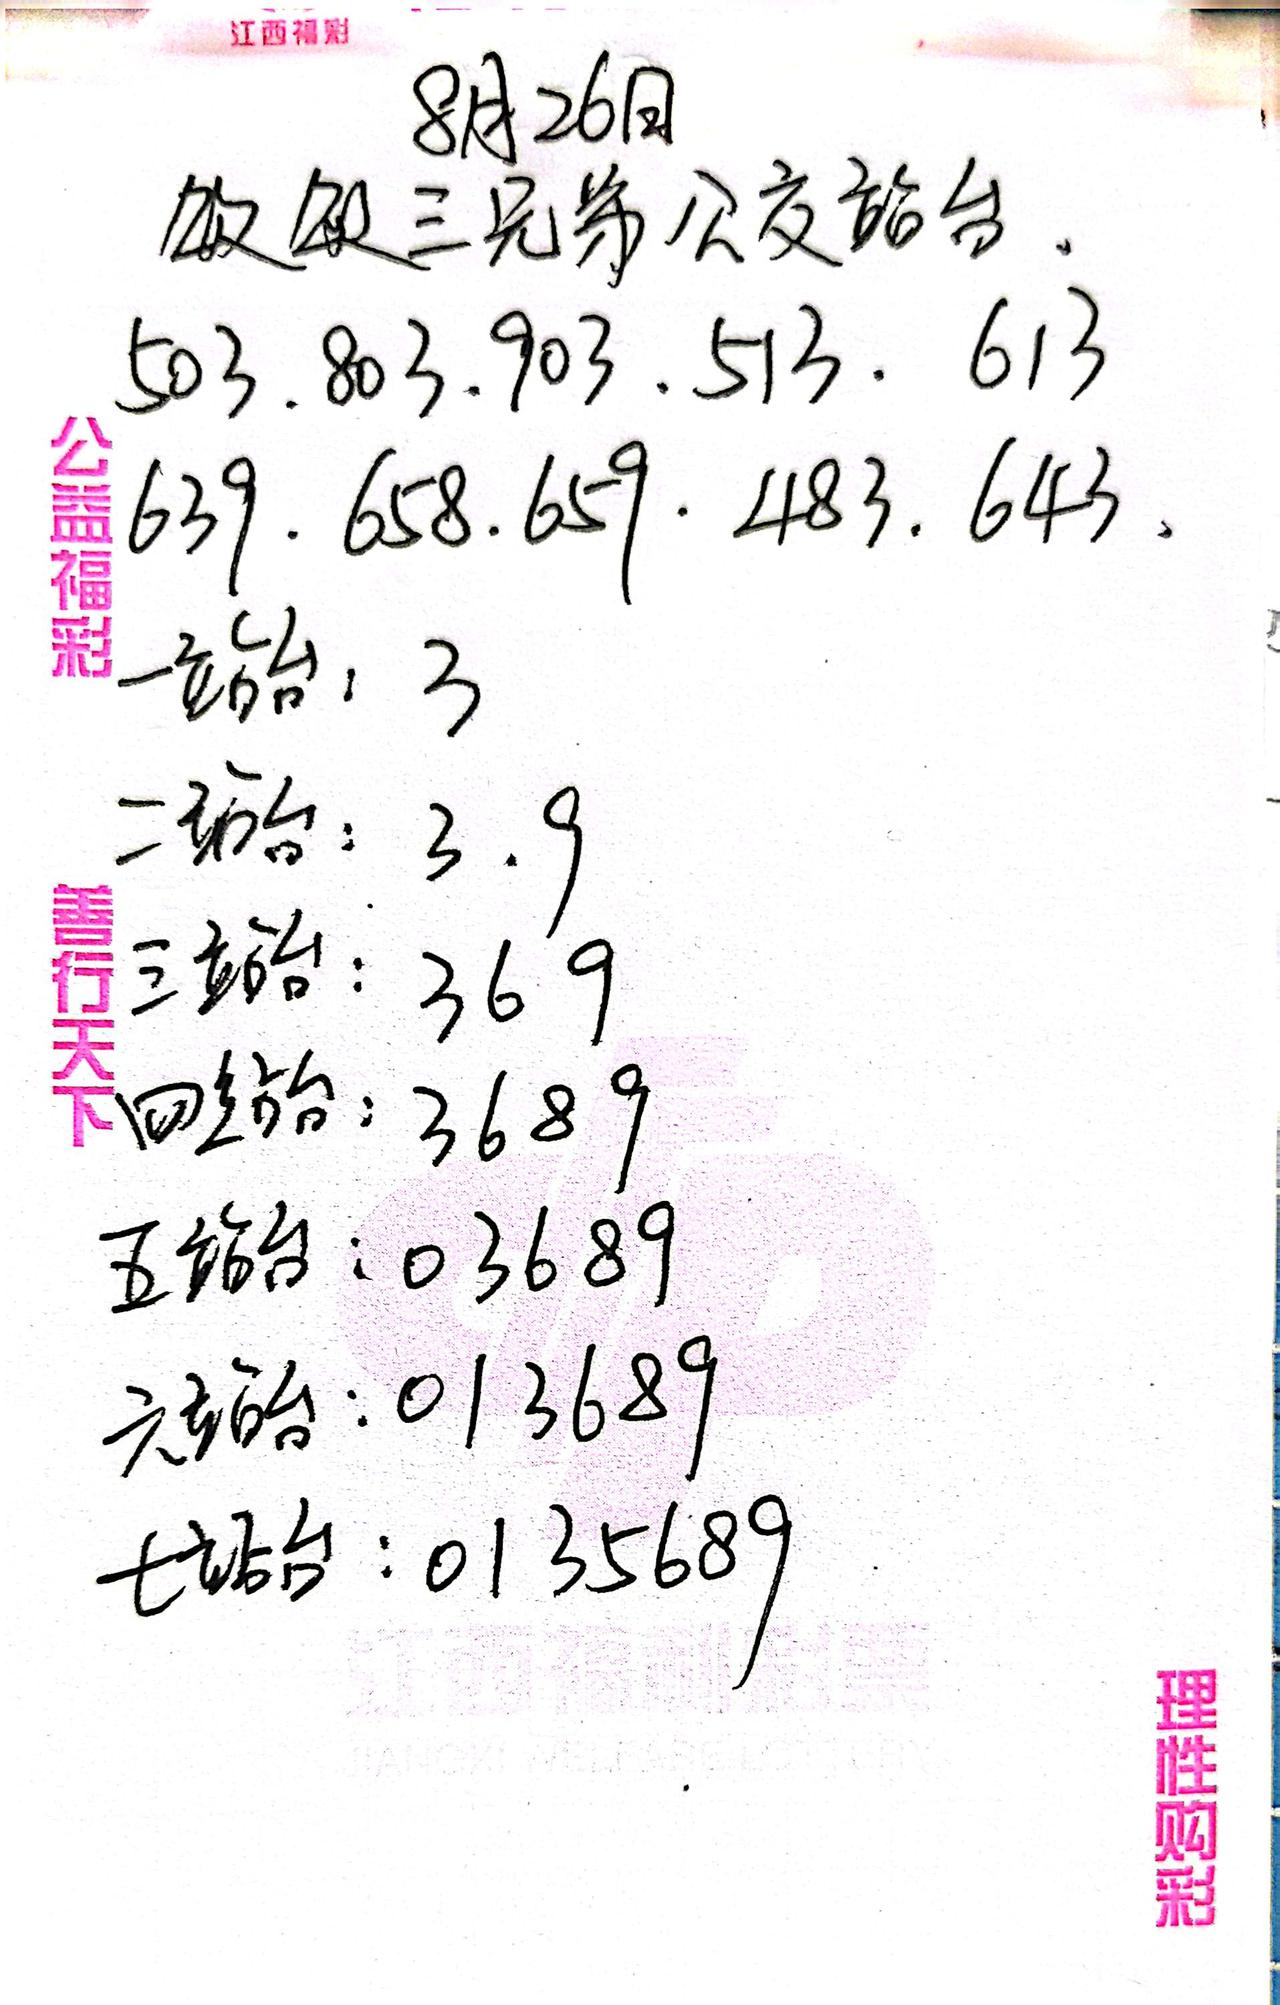 江西福彩
8月26日
敏敏三兄弟公交站台.
503.803.903.513.613
639.658.659.483.643.
一站台:3
二站台:3.9
三站台:369
四站台:3689
五站台:03689
六站台:013689
七站台:0135689
公益福彩
善行天下
理性购彩